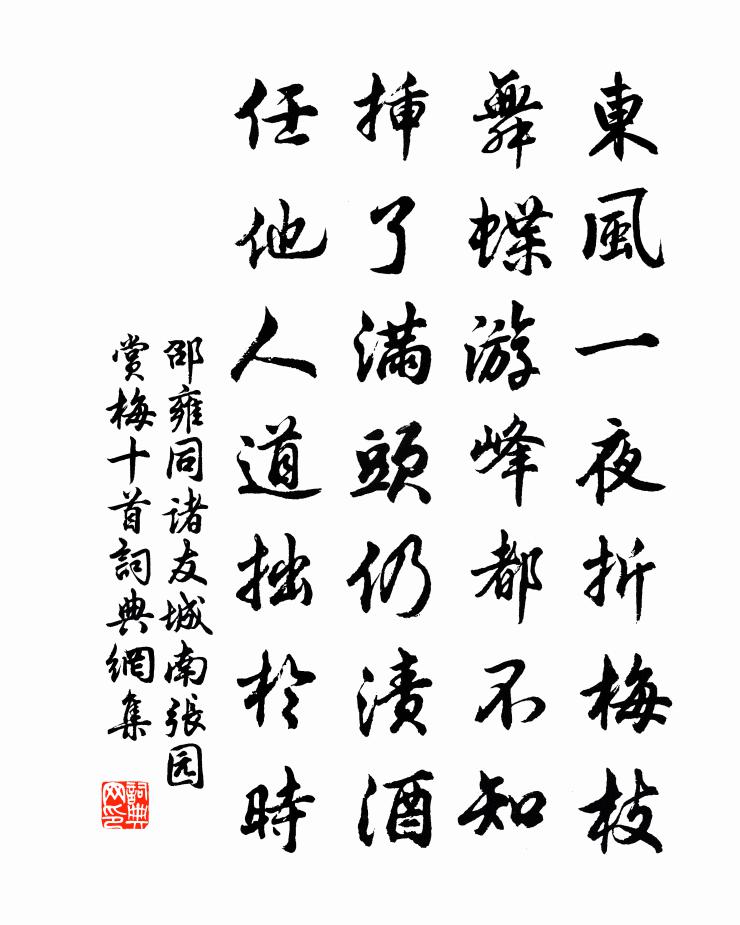 東風一夜折梅枝
舞蝶游峰都不知
挿了滿頭仍漬酒
任他人道拙於時
邵雍同诸友城南張园
赏梅十首詞典網集
詞典网印